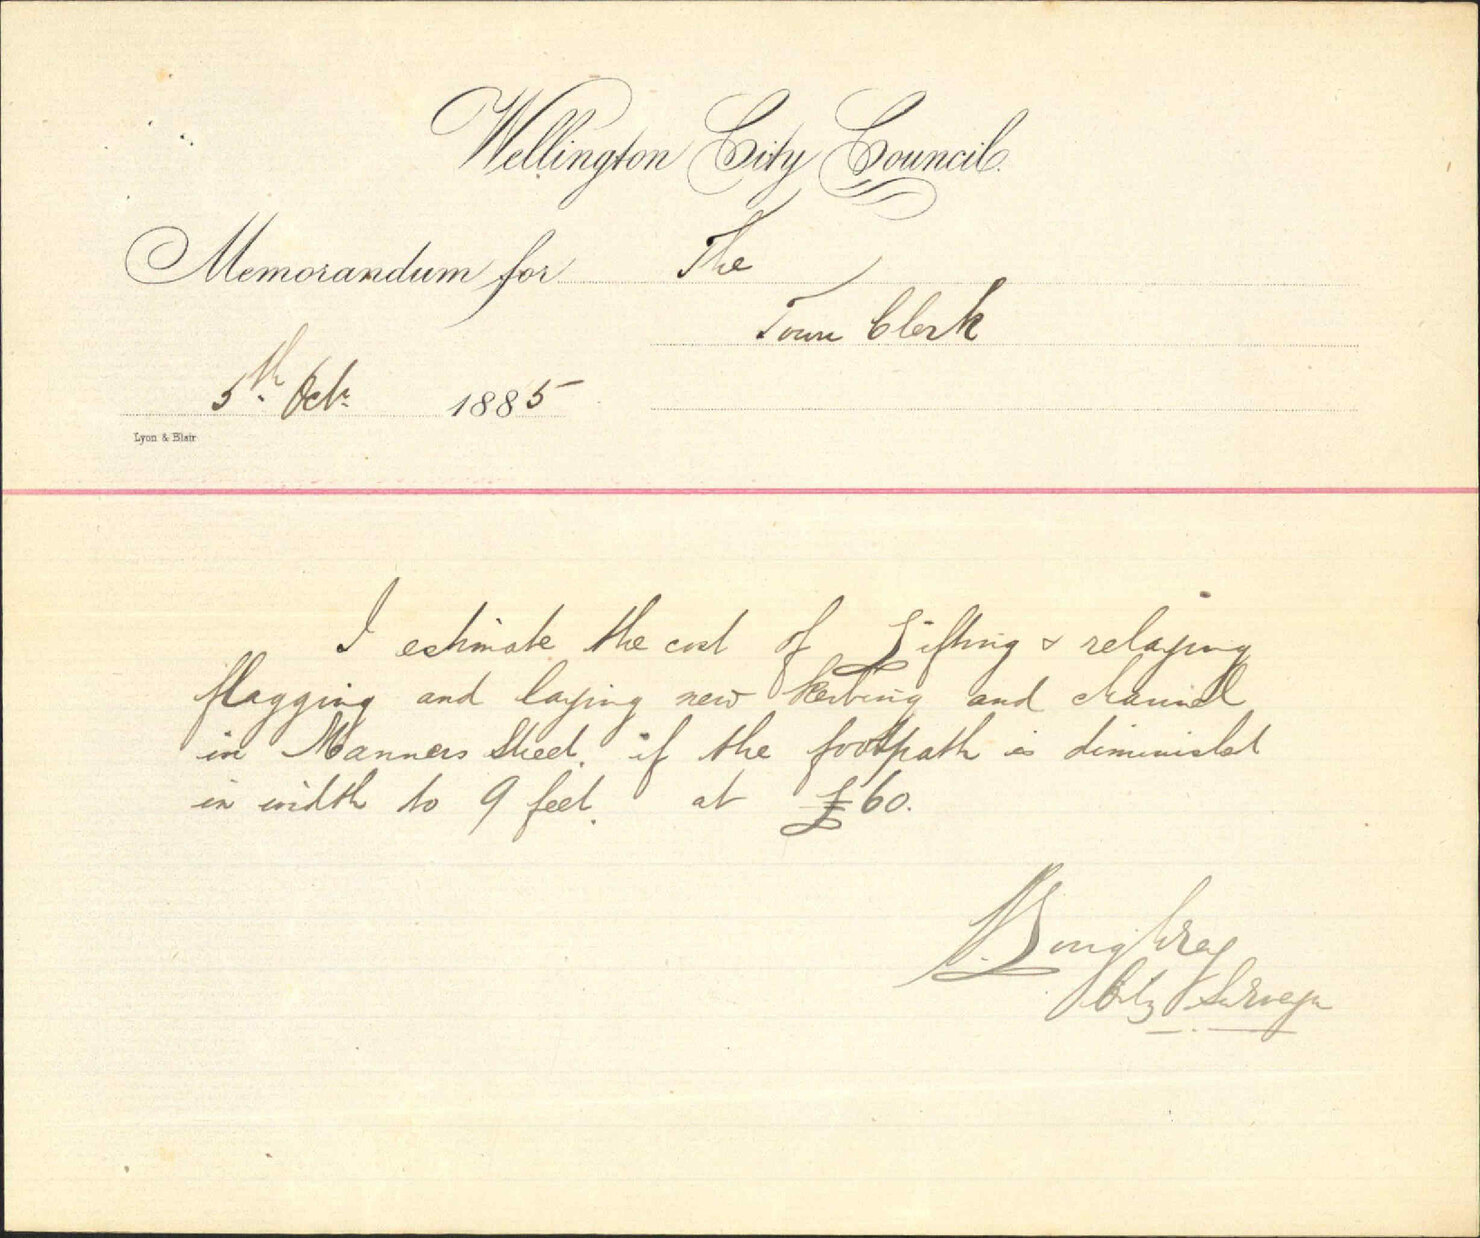 Wellington City Council.
Memorandum for The
Town Clerk
5th. Octr. 1885
Lyon & Blair
I estimate the cost of Lifting & relaying
flagging and laying new kerbing and channel
in Manners Street. if the footpath is diminished
in width to 9 feet. at £60.
Loughrey
City Surveyor